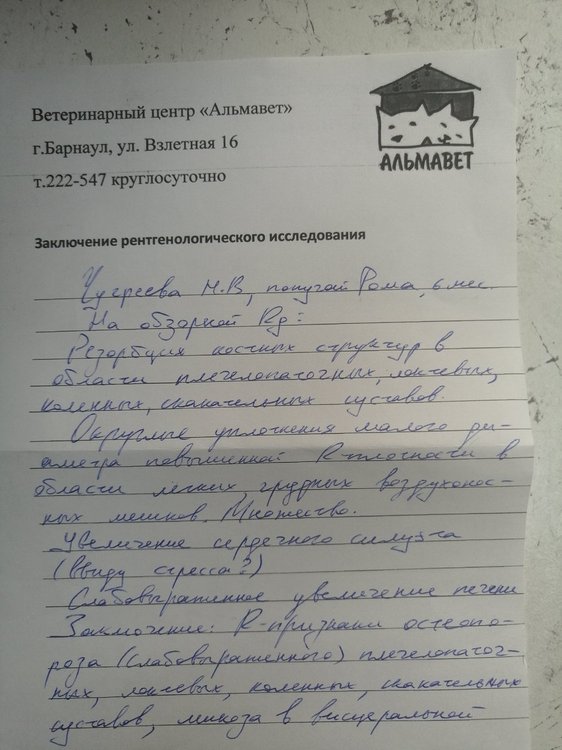 Ветеринарный центр «Альмавет»
г.Барнаул, ул. Взлетная 16
т.222-547 круглосуточно
АЛЬМАВЕТ
Заключение рентгенологического исследования
Чугреева М.В, попугай Рома, 6 мес.
На обзорной Rg:
Резорбция костных структур в
области плечелопаточных, локтевых,
коленных, скакательных суставов.
Округлые уплотнения малого ди-
аметра повышенной R-плотности в
области легких, грудных воздухонос-
ных мешков. Множество.
Увеличение сердечного силуэта
(ввиду стресса?)
Слабовыраженное увеличение печени
Заключение: R-признаки остеопо-
роза (слабовыраженного) плечелопаточ-
ных, локтевых, коленных, скакательных
суставов, микоза в висцеральной